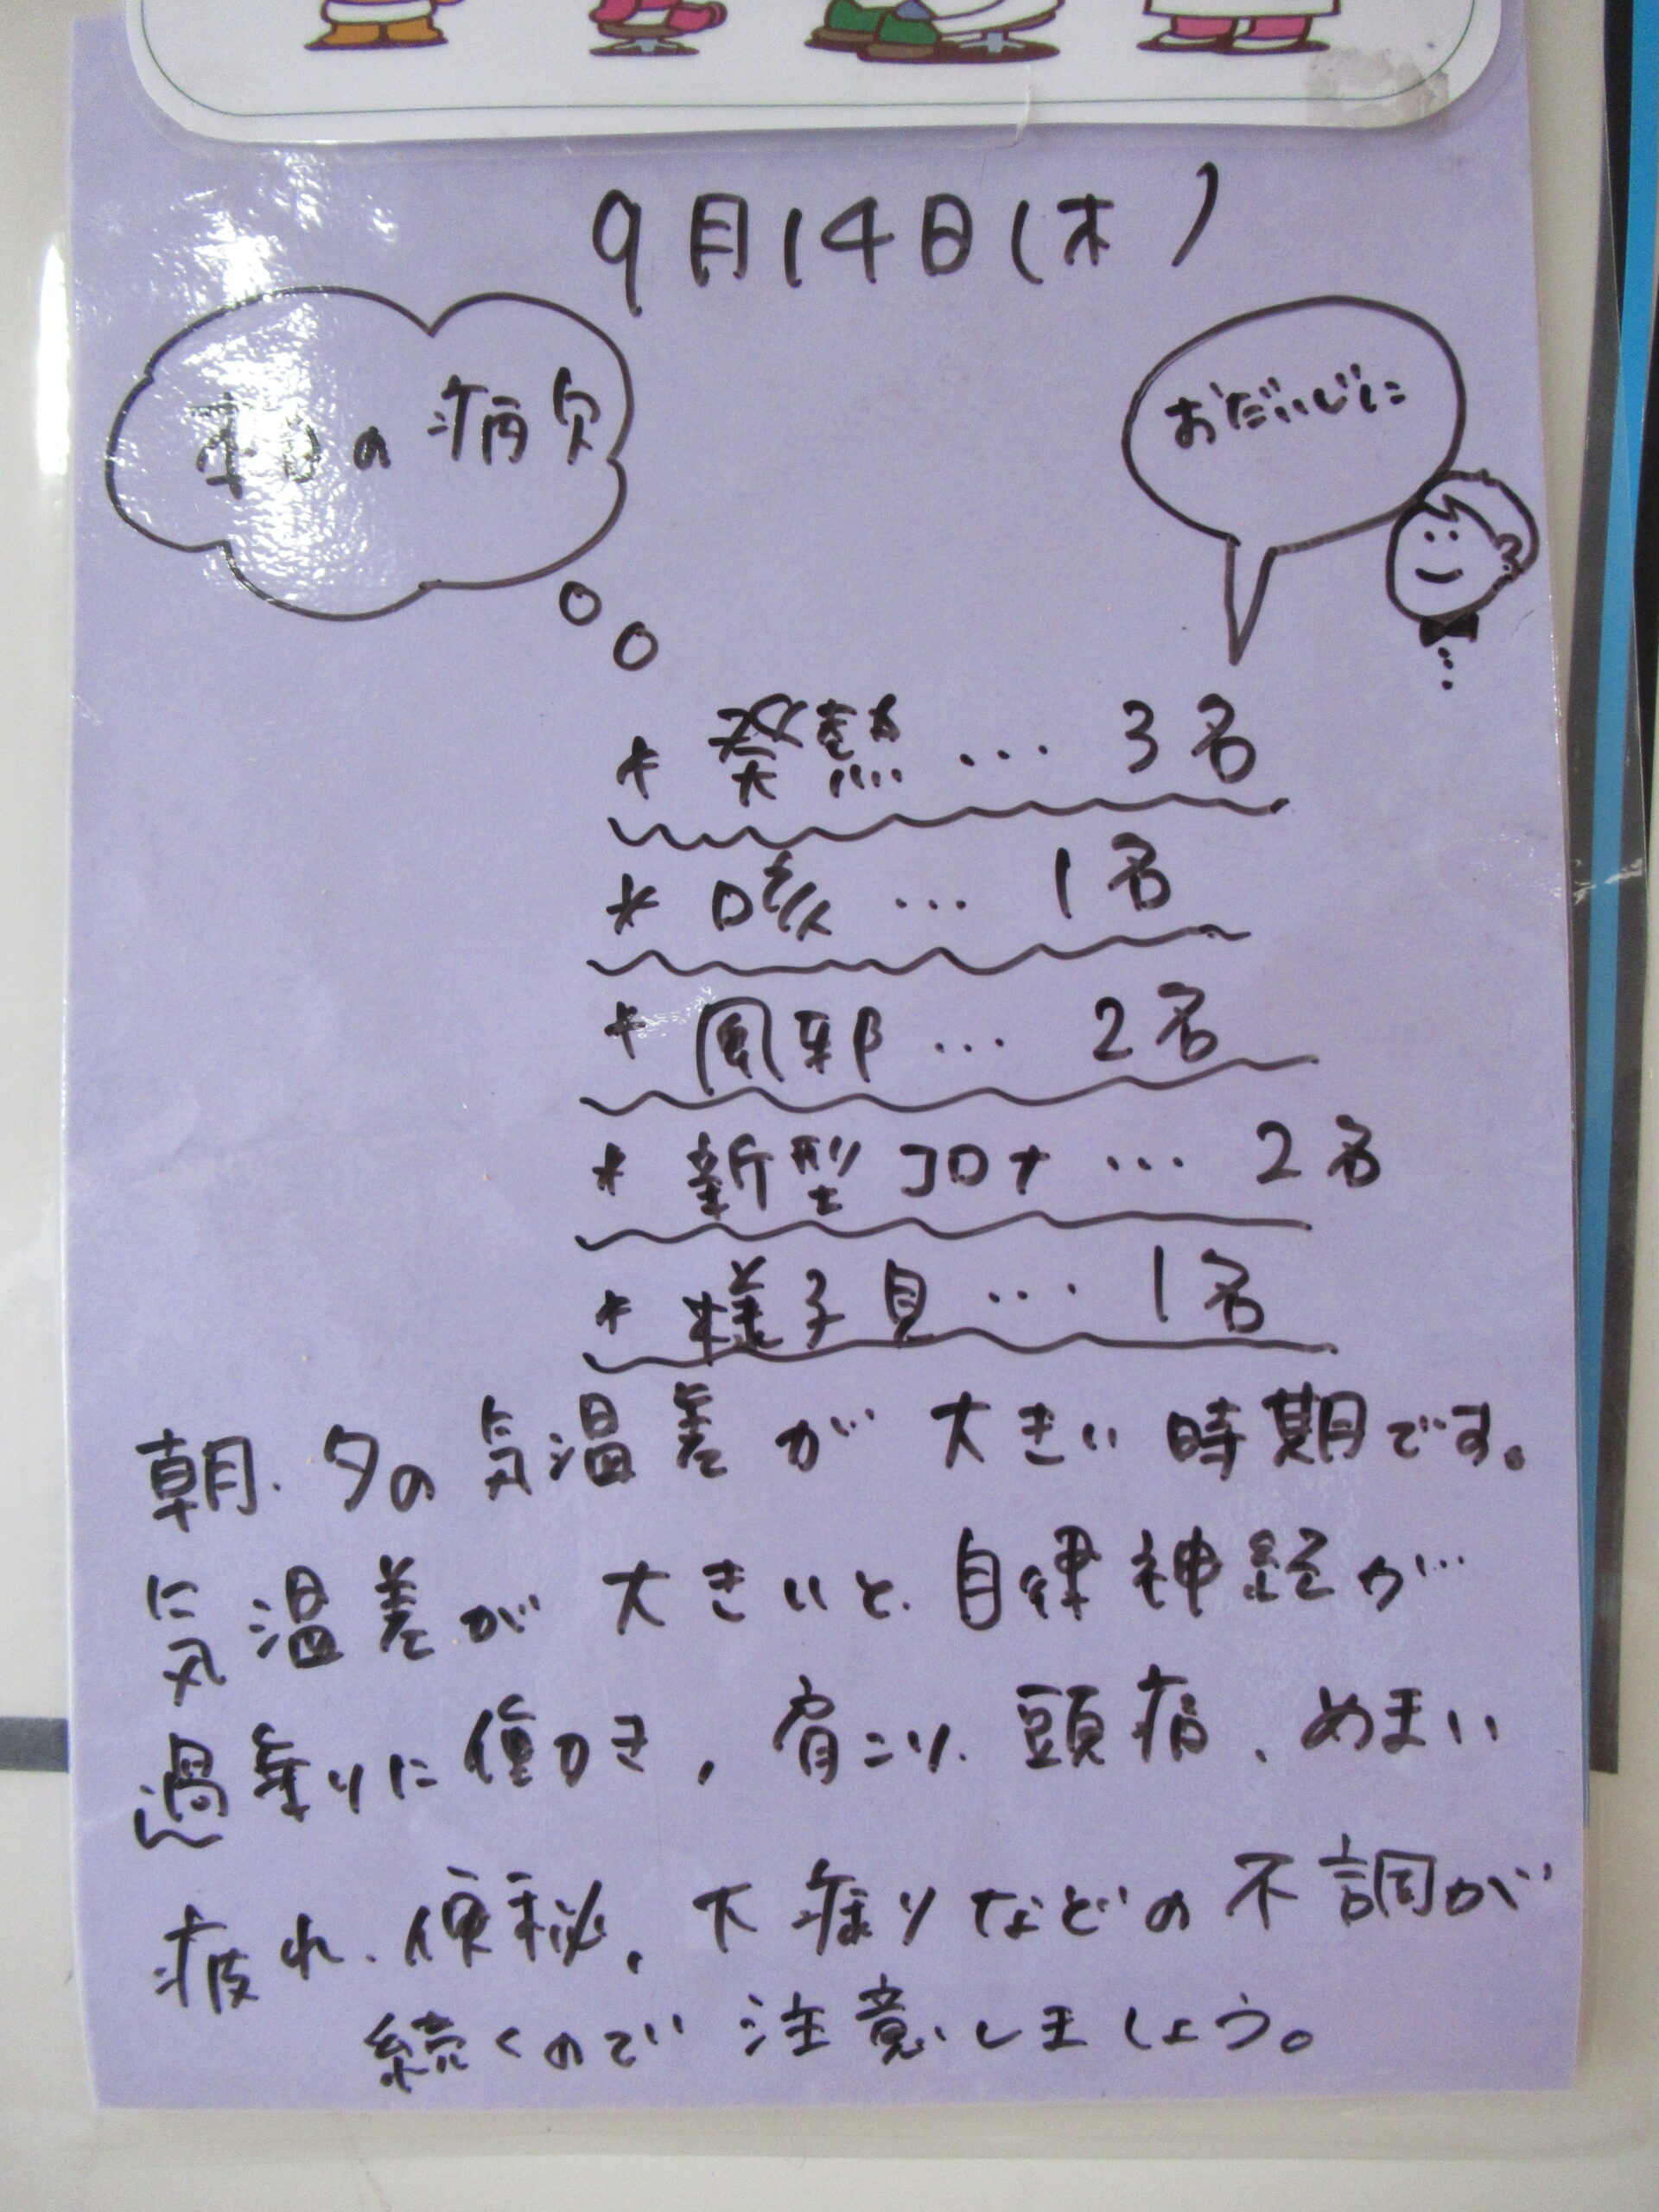 9月14日(木)
本日の病欠
おだいじに
* 発熱 … 3名
* 咳 … 1名
* 風邪 … 2名
* 新型コロナ … 2名
* 様子見 … 1名
朝、夕の気温差が大きい時期です。
気温差が大きいと、自律神経が
過剰に働き、肩こり、頭痛、めまい
疲れ、便秘、下痢などの不調が
続くので注意しましょう。